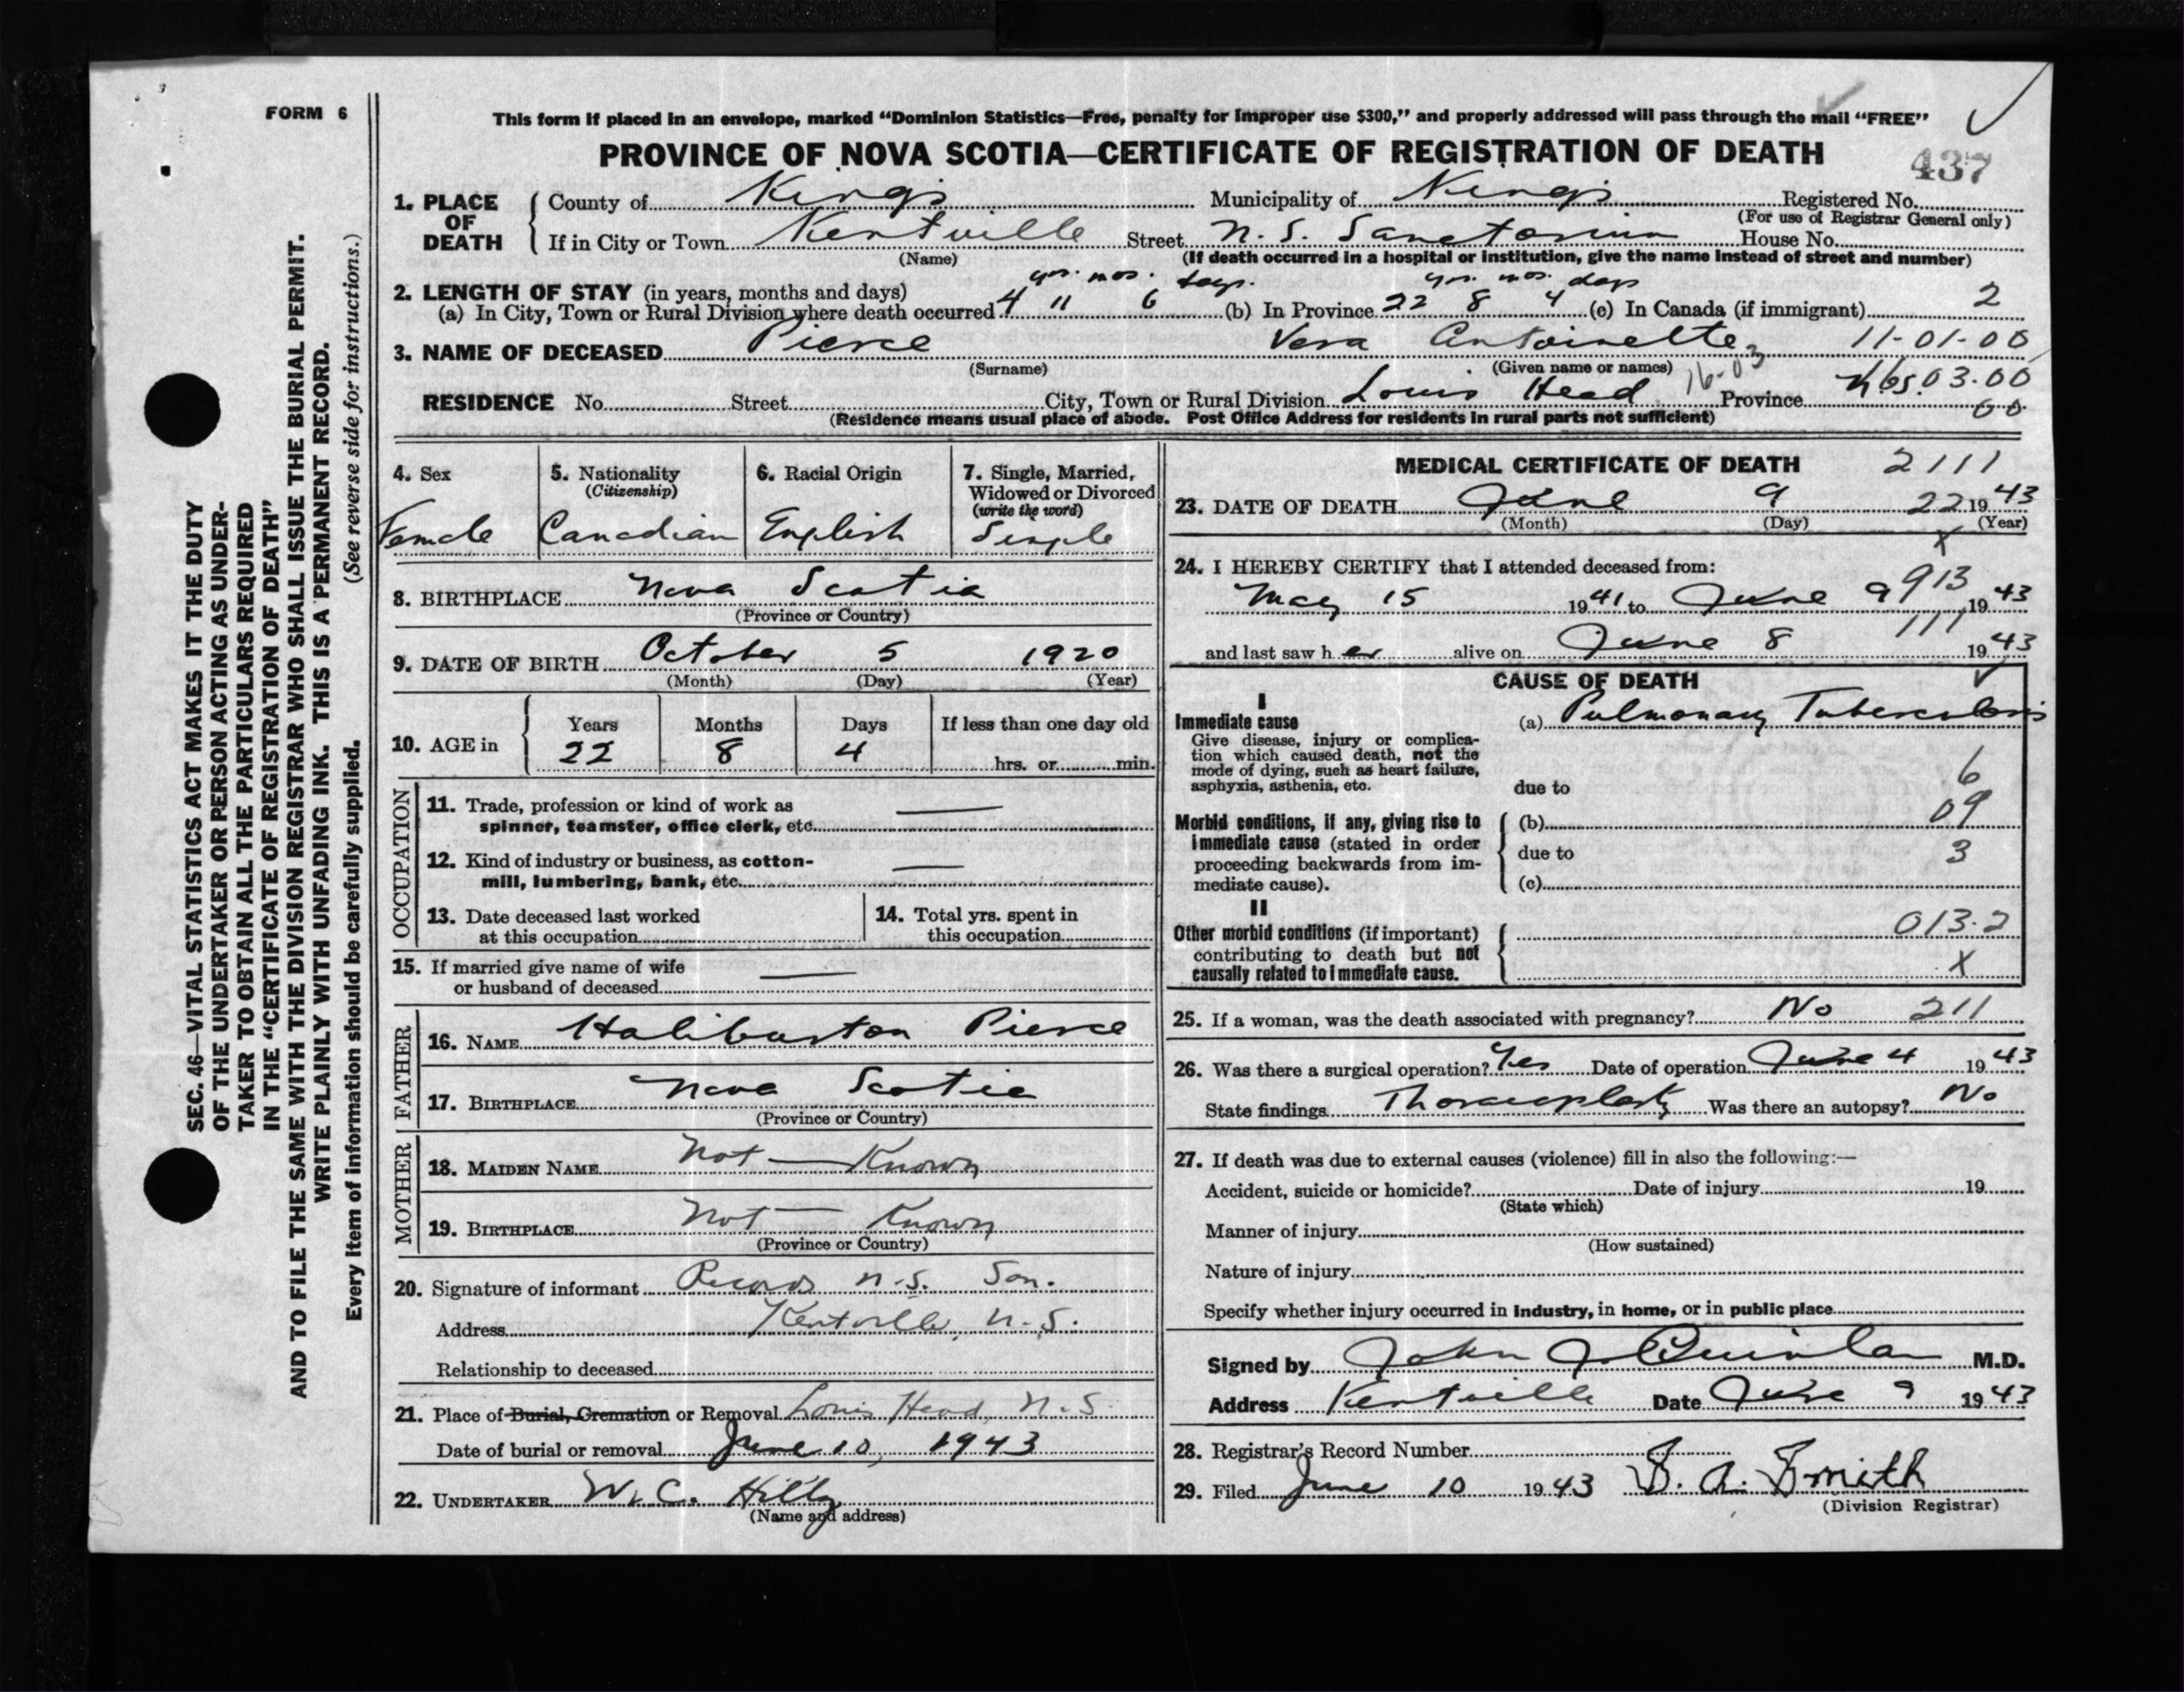 FORM 6
This form if placed in an envelope, marked “Dominion Statistics—Free, penalty for improper use $300,” and properly addressed will pass through the mail “FREE”
PROVINCE OF NOVA SCOTIA—CERTIFICATE OF REGISTRATION OF DEATH
437
1. PLACE OF DEATH
County of Kings Municipality of Kings Registered No.
(For use of Registrar General only)
If in City or Town Kentville Street N. S. Sanatorium House No.
(Name) (If death occurred in a hospital or institution, give the name instead of street and number)
yrs. mos. days. yrs. mos. days
2. LENGTH OF STAY (in years, months and days)
(a) In City, Town or Rural Division where death occurred 4 11 6 (b) In Province 22 8 4 (c) In Canada (if immigrant) 2
3. NAME OF DECEASED Pierce Vera Antoinette 11-01-00
(Surname) (Given name or names) 16-03
RESIDENCE No. Street City, Town or Rural Division Louis Head Province N.S. 03.00
(Residence means usual place of abode. Post Office Address for residents in rural parts not sufficient) 00
4. Sex Female
5. Nationality (Citizenship) Canadian
6. Racial Origin English
7. Single, Married, Widowed or Divorced (write the word) Single
8. BIRTHPLACE Nova Scotia
(Province or Country)
9. DATE OF BIRTH October 5 1920
(Month) (Day) (Year)
10. AGE in Years Months Days If less than one day old
22 8 4 hrs. or min.
OCCUPATION
11. Trade, profession or kind of work as —
spinner, teamster, office clerk, etc.
12. Kind of industry or business, as cotton- —
mill, lumbering, bank, etc.
13. Date deceased last worked
at this occupation
14. Total yrs. spent in
this occupation
15. If married give name of wife —
or husband of deceased
FATHER
16. NAME Haliburton Pierce
17. BIRTHPLACE Nova Scotia
(Province or Country)
MOTHER
18. MAIDEN NAME Not — Known
19. BIRTHPLACE Not — Known
(Province or Country)
20. Signature of informant Records N.S. San.
Address Kentville, N.S.
Relationship to deceased
21. Place of Burial, Cremation or Removal Louis Head, N.S.
Date of burial or removal June 10, 1943
22. UNDERTAKER W. C.
(Name and address)
MEDICAL CERTIFICATE OF DEATH 2111
23. DATE OF DEATH June 9 22 1943
(Month) (Day) (Year)
x
24. I HEREBY CERTIFY that I attended deceased from:
913
May 15 1941 to June 9 1943
111
and last saw her alive on June 8 1943
CAUSE OF DEATH
I
Immediate cause
Give disease, injury or complica-
tion which caused death, not the
mode of dying, such as heart failure,
asphyxia, asthenia, etc.
(a) Pulmonary Tuberculosis
6
due to
09
Morbid conditions, if any, giving rise to
immediate cause (stated in order
proceeding backwards from im-
mediate cause).
(b)
due to 3
(c)
II
Other morbid conditions (if important)
contributing to death but not
causally related to immediate cause.
013.2
X
25. If a woman, was the death associated with pregnancy? No 211
26. Was there a surgical operation? Yes Date of operation June 4 1943
State findings Thoracoplasty Was there an autopsy? No
27. If death was due to external causes (violence) fill in also the following:—
Accident, suicide or homicide? Date of injury 19
(State which)
Manner of injury
(How sustained)
Nature of injury
Specify whether injury occurred in industry, in home, or in public place
Signed by John J Quinlan M.D.
Address Kentville Date June 9 1943
28. Registrar's Record Number
29. Filed June 10 1943 S. A. Smith
(Division Registrar)
SEC. 46—VITAL STATISTICS ACT MAKES IT THE DUTY
OF THE UNDERTAKER OR PERSON ACTING AS UNDER-
TAKER TO OBTAIN ALL THE PARTICULARS REQUIRED
IN THE “CERTIFICATE OF REGISTRATION OF DEATH”
AND TO FILE THE SAME WITH THE DIVISION REGISTRAR WHO SHALL ISSUE THE BURIAL PERMIT.
WRITE PLAINLY WITH UNFADING INK. THIS IS A PERMANENT RECORD.
Every item of information should be carefully supplied. (See reverse side for instructions.)